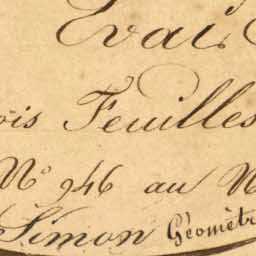 Evai
ois Feuilles
N° 946 au N
Simon Géomètr